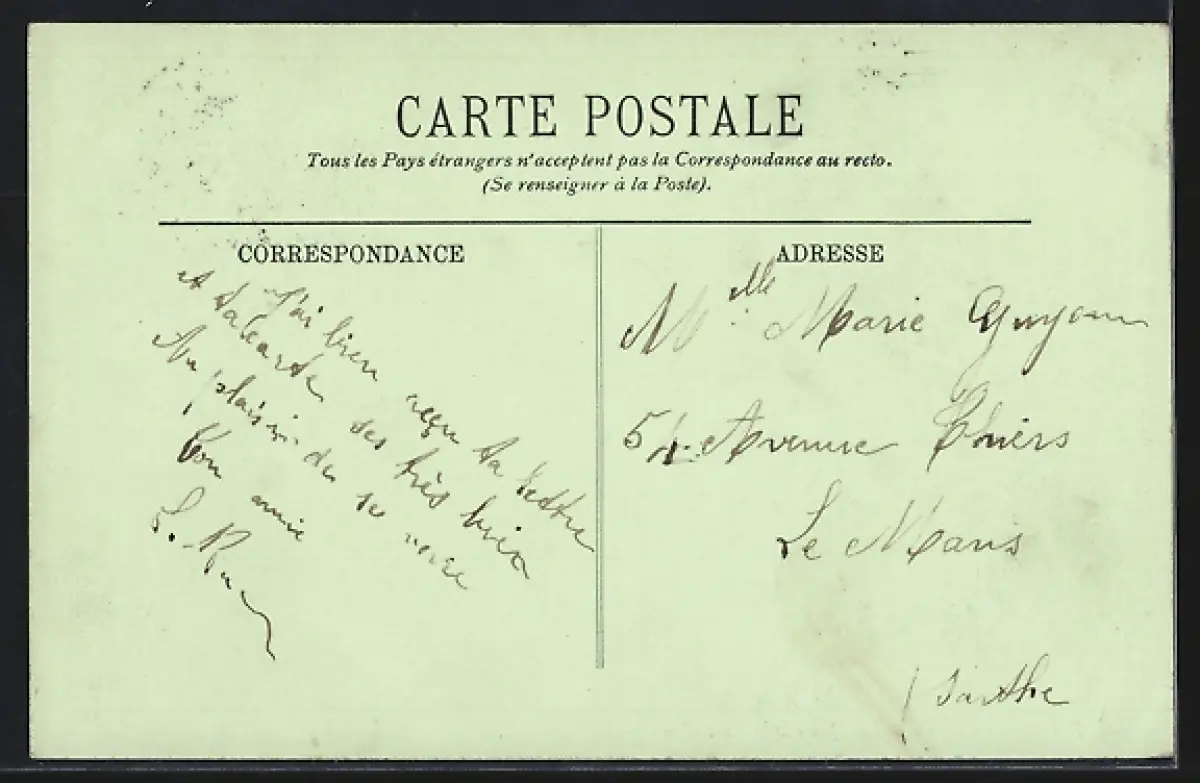 CARTE POSTALE
Tous les Pays étrangers n'acceptent pas la Correspondance au recto.
(Se renseigner à la Poste).
CORRESPONDANCE
J'ai bien reçu ta lettre
et ta carte ses très bien
Au plaisir de se
Ton amie
L.
ADRESSE
Mlle Marie
54 Avenue Thiers
Le Mans
Sarthe